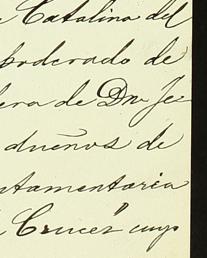 Catalina del
poderado de
era de Dn Je
dueños de
tamentaria
Cruces" cuyo